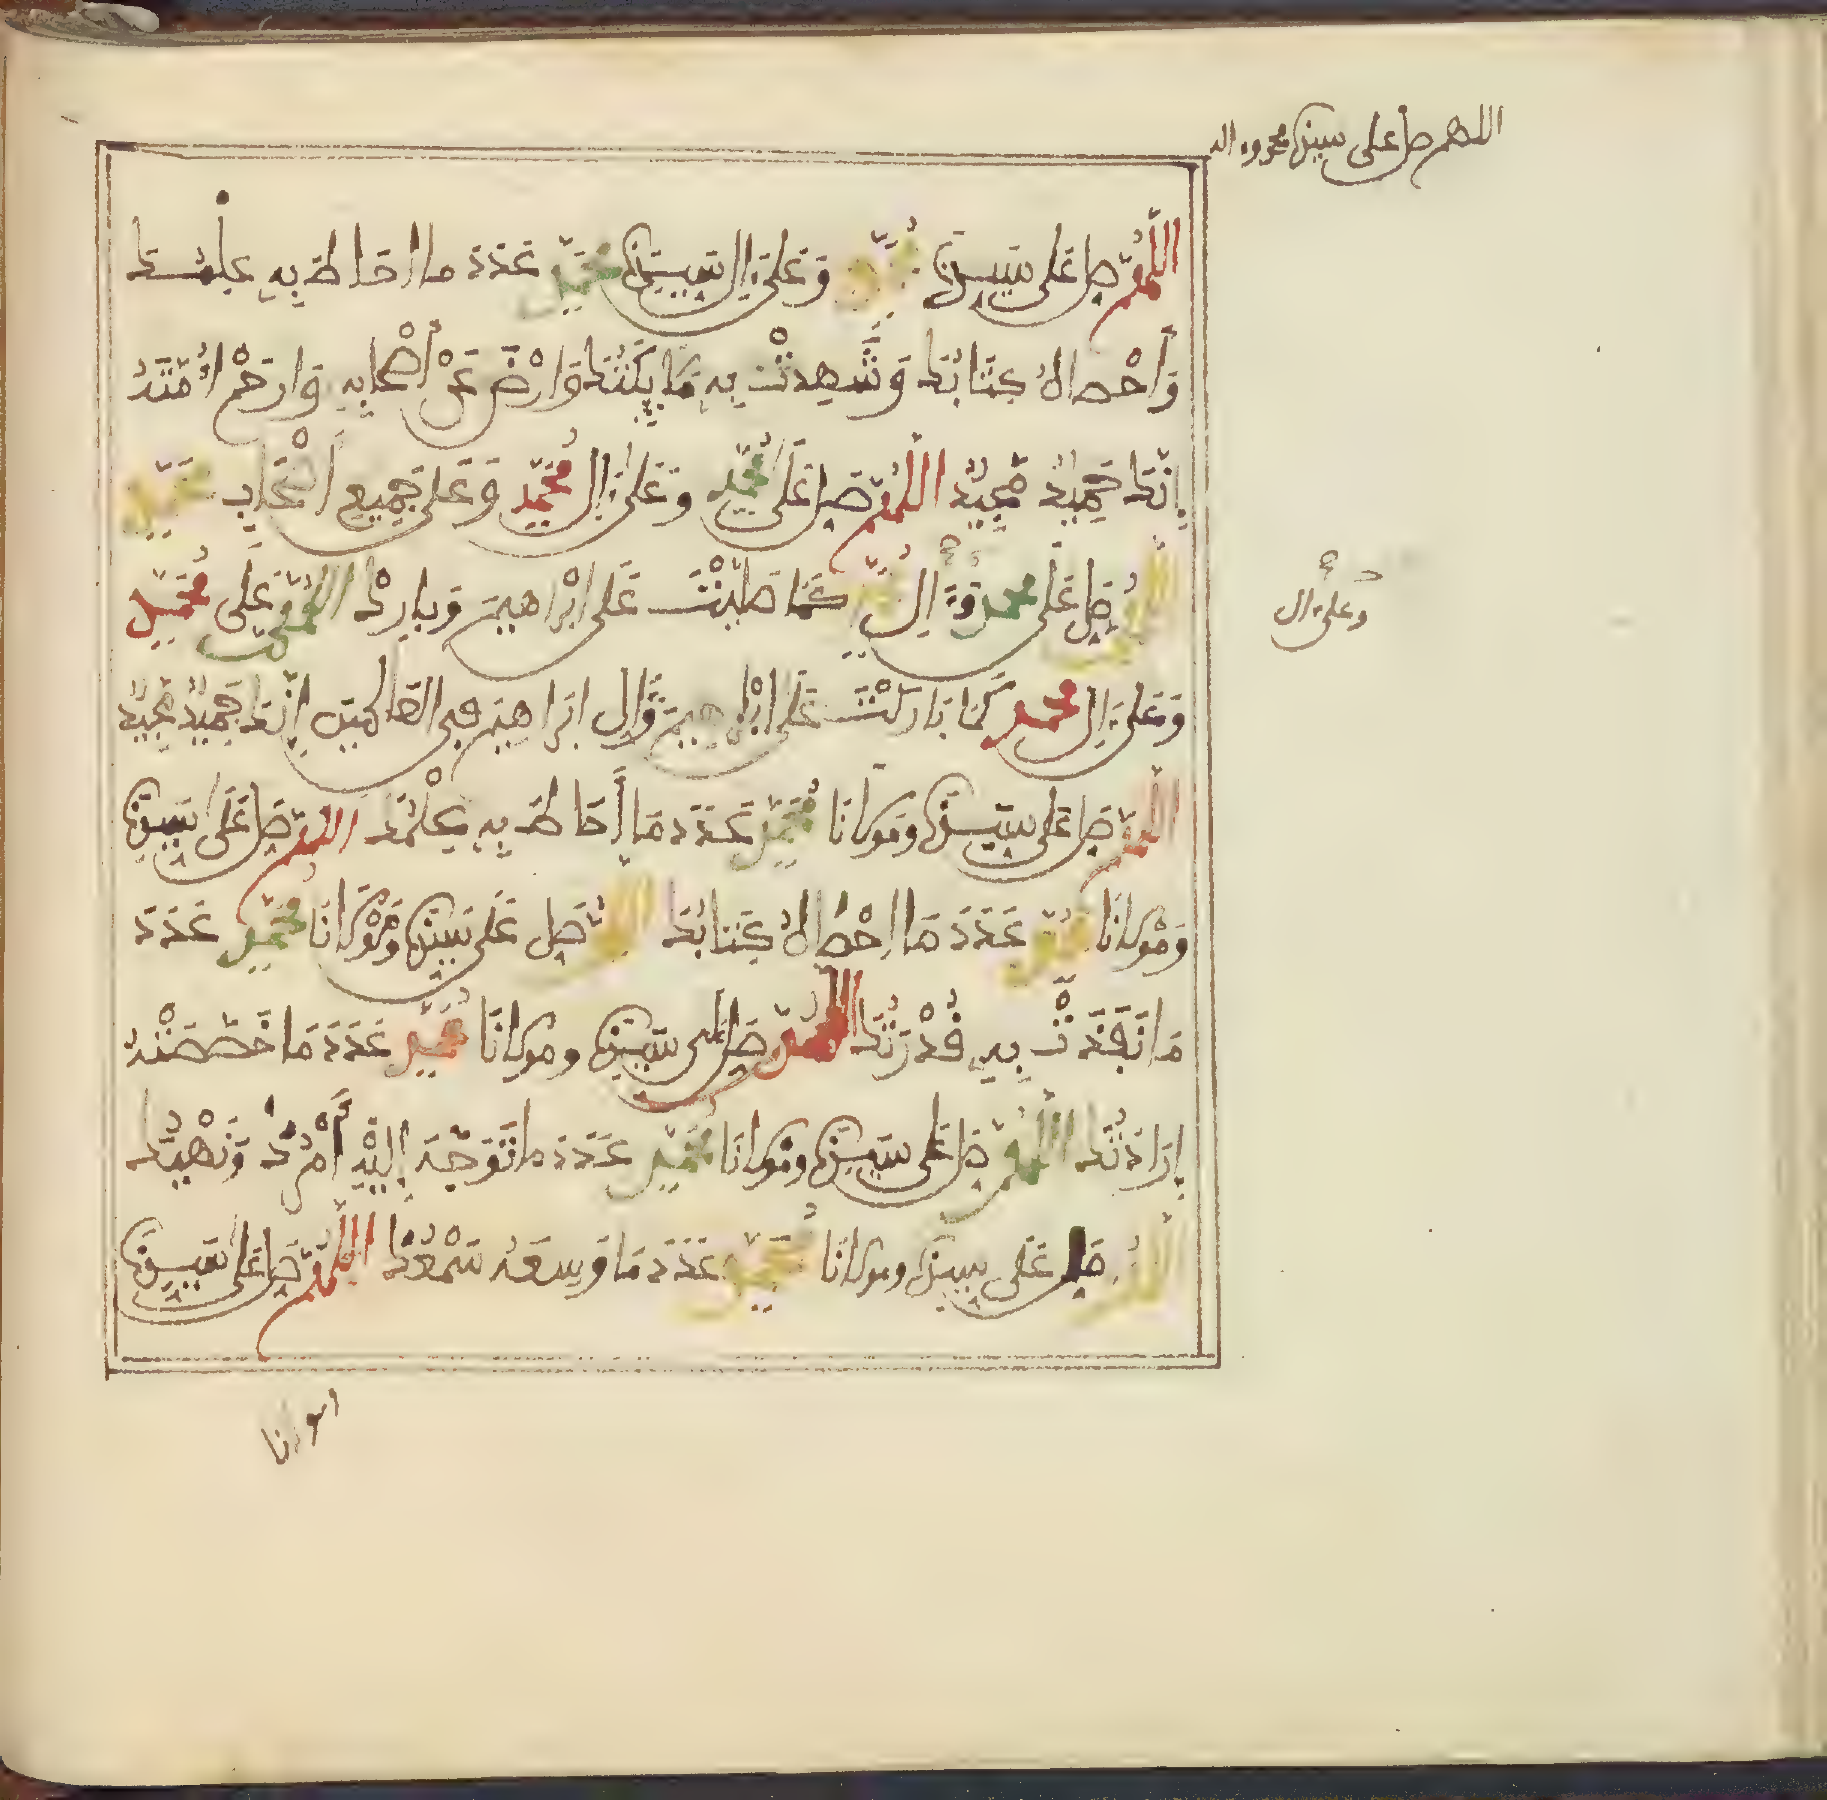 اللهم صل على سيدنا محمد وءاله
اللهم صل على سيدنا محمد وعلى ءال سيدنا محمد عدد ما احاط به علمك
وأحصاه كتابك وشهدت به ملائكتك وارض عن أصحابه وارحم أمته
إنك حميد مجيد اللهم صل على محمد وعلى ءال محمد وعلى جميع أصحاب محمد
اللهم صل على محمد وءال محمد كما صليت على ابراهيم وبارك اللهم على محمد
وعلى ءال
وعلى ءال محمد كما باركت على ابراهيم وءال ابراهيم في العالمين إنك حميد مجيد
اللهم صل على سيدنا ومولانا محمد عدد ما أحاط به علمك اللهم صل على سيدنا
ومولانا محمد عدد ما احصاه كتابك اللهم صل على سيدنا ومولانا محمد عدد
ما نفذت به قدرتك اللهم صل على سيدنا ومولانا محمد عدد ما خصصته
إرادتك اللهم صل على سيدنا ومولانا محمد عدد ما توجه إليه أمرك ونهيك
اللهم صل على سيدنا ومولانا محمد عدد ما وسعه سمعك اللهم صل على سيدنا
ومولانا